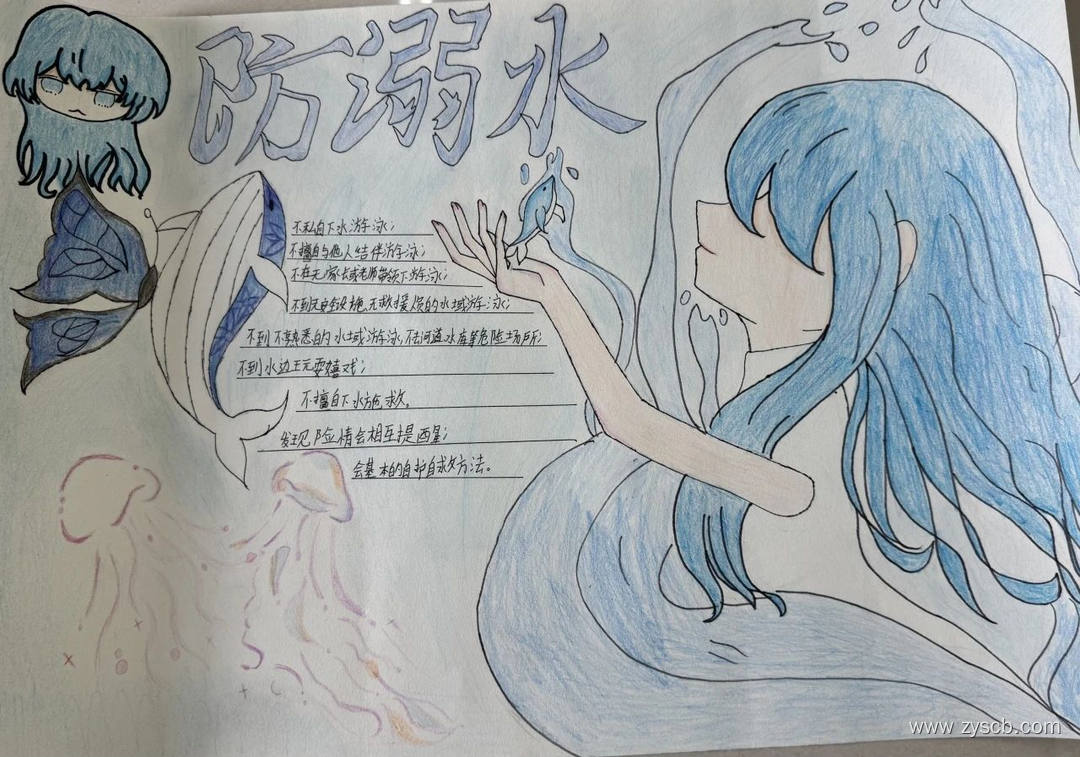 防溺水
不私自下水游泳；
不擅自与他人结伴游泳；
不在无家长或老师带领下游泳；
不到无安全设施、无救援人员的水域游泳；
不到不熟悉的水域游泳，不去河道水库等危险场所；
不到水边玩耍嬉戏；
不擅自下水施救。
发现险情会相互提醒；
会基本的自护自救方法。
www.zyscb.com